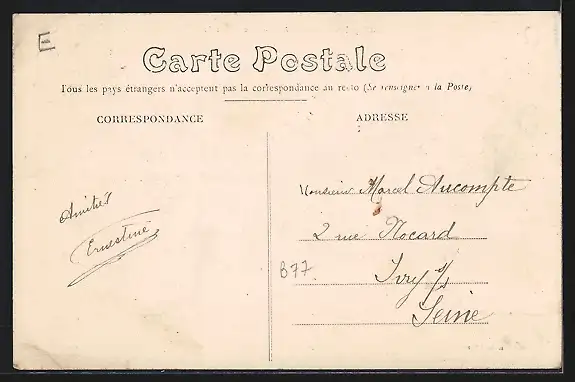 E
Carte Postale
Tous les pays étrangers n'acceptent pas la correspondance au recto (Se renseigner à la Poste)
CORRESPONDANCE
ADRESSE
Amitiés
Ernestine
Monsieur Marcel Aucompte
2 rue Nocard
B77
Ivry s/
Seine